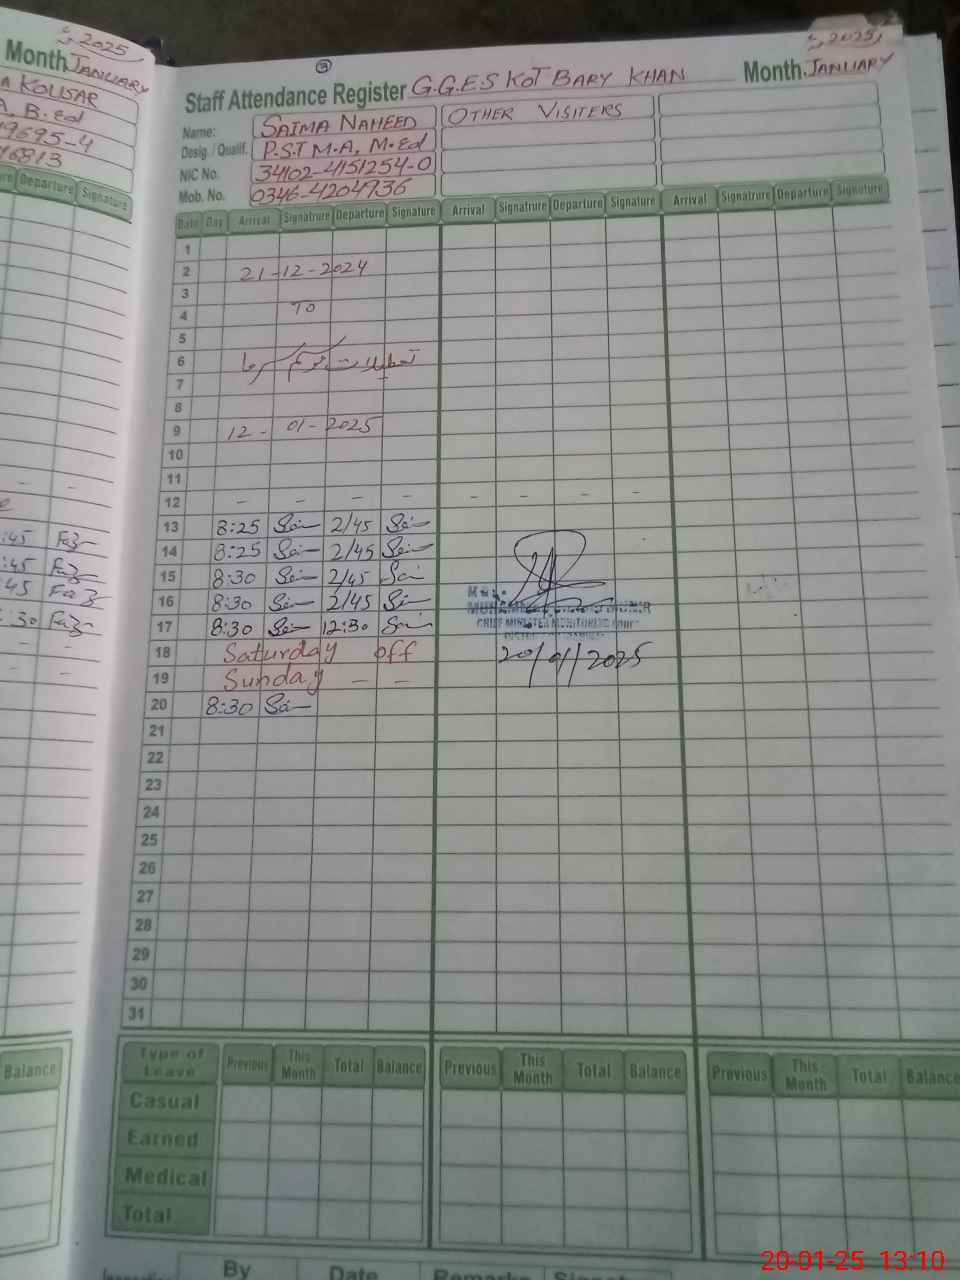 2025
Month JANUARY
A KOUSAR
A, B.Ed
19695-4
16813
Departure Signature
:45
:45
45
:30
Balance
3
2025
Staff Attendance Register G.G.E.S KOT BARY KHAN Month JANUARY
Name: SAIMA NAHEED OTHER VISITERS
Desig. / Qualif. P.S.T M.A, M.Ed
NIC No. 34102-4151254-0
Mob. No. 0346-4204736
Date Day Arrival Signatrure Departure Signature Arrival Signatrure Departure Signature Arrival Signatrure Departure Signature
1
2 21-12-2024
3
4 TO
5
6 تعطیلات موسم سرما
7
8
9 12-01-2025
10
11
12 - - - - - - - -
13 8:25 2/45
14 8:25 2/45
15 8:30 2/45
16 8:30 2/45
17 8:30 12:30
18 Saturday off
19 Sunday - -
20 8:30
CHIEF MINISTER MONITORING
20/01/2025
21
22
23
24
25
26
27
28
29
30
31
Type of Leave Previous This Month Total Balance Previous This Month Total Balance Previous This Month Total Balance
Casual
Earned
Medical
Total
By Date Remarks
20-01-25 13:10